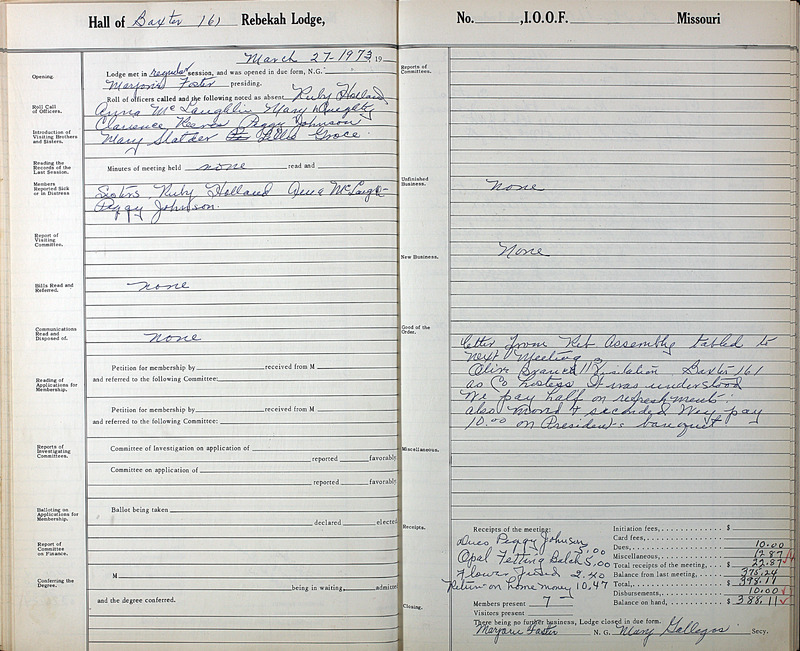 Hall of Baxter 161 Rebekah Lodge,
March 27-1973 19
Opening.
Lodge met in regular session, and was opened in due form, N.G.
Marjorie Foster presiding.
Roll Call of Officers.
Roll of officers called and the following noted as absent Ruby Holland
Anna McLaughlin Mary Daughty
Clarence Reeves Peggy Johnson
Introduction of Visiting Brothers and Sisters.
Mary Slatder Lillie Groce
Reading the Records of the Last Session.
Minutes of meeting held none read and
Members Reported Sick or in Distress
Sisters Ruby Holland Anna McLaugh-
Peggy Johnson.
Report of Visiting Committee.
Bills Read and Referred.
none
Communications Read and Disposed of.
none
Petition for membership by received from M
and referred to the following Committee:
Reading of Applications for Membership.
Petition for membership by received from M
and referred to the following Committee:
Reports of Investigating Committees.
Committee of Investigation on application of
reported favorably
Committee on application of
reported favorably
Balloting on Applications for Membership.
Ballot being taken
declared elected
Report of Committee on Finance.
Conferring the Degree.
M
being in waiting, admitted
and the degree conferred.
No. , I.O.O.F. Missouri
Reports of Committees.
Unfinished Business.
None
New Business.
None
Good of the Order.
letter from Reb Assembly tabled to
next Meeting
Olive Branch 113 Visitation Baxter 161
as Co hostess It was understood
We pay half on refreshments.
also moved & seconded Wey pay
10.00 on President's banquet
Miscellaneous.
Receipts.
Receipts of the meeting:
Dues Peggy Johnson 5.00
Opal Fetting Balch 5.00
Flower Fund 2.40
Return on home money 10.47
Initiation fees, $
Card fees,
Dues, 10.00
Miscellaneous, 12.87
Total receipts of the meeting, $ 22.87
Balance from last meeting, 375.24
Total, 398.11
Disbursements, 10.00
Balance on hand, $ 388.11
Members present 7
Visitors present
Closing.
There being no further business, Lodge closed in due form.
Marjorie Foster N. G. Mary Gallegos Secy.